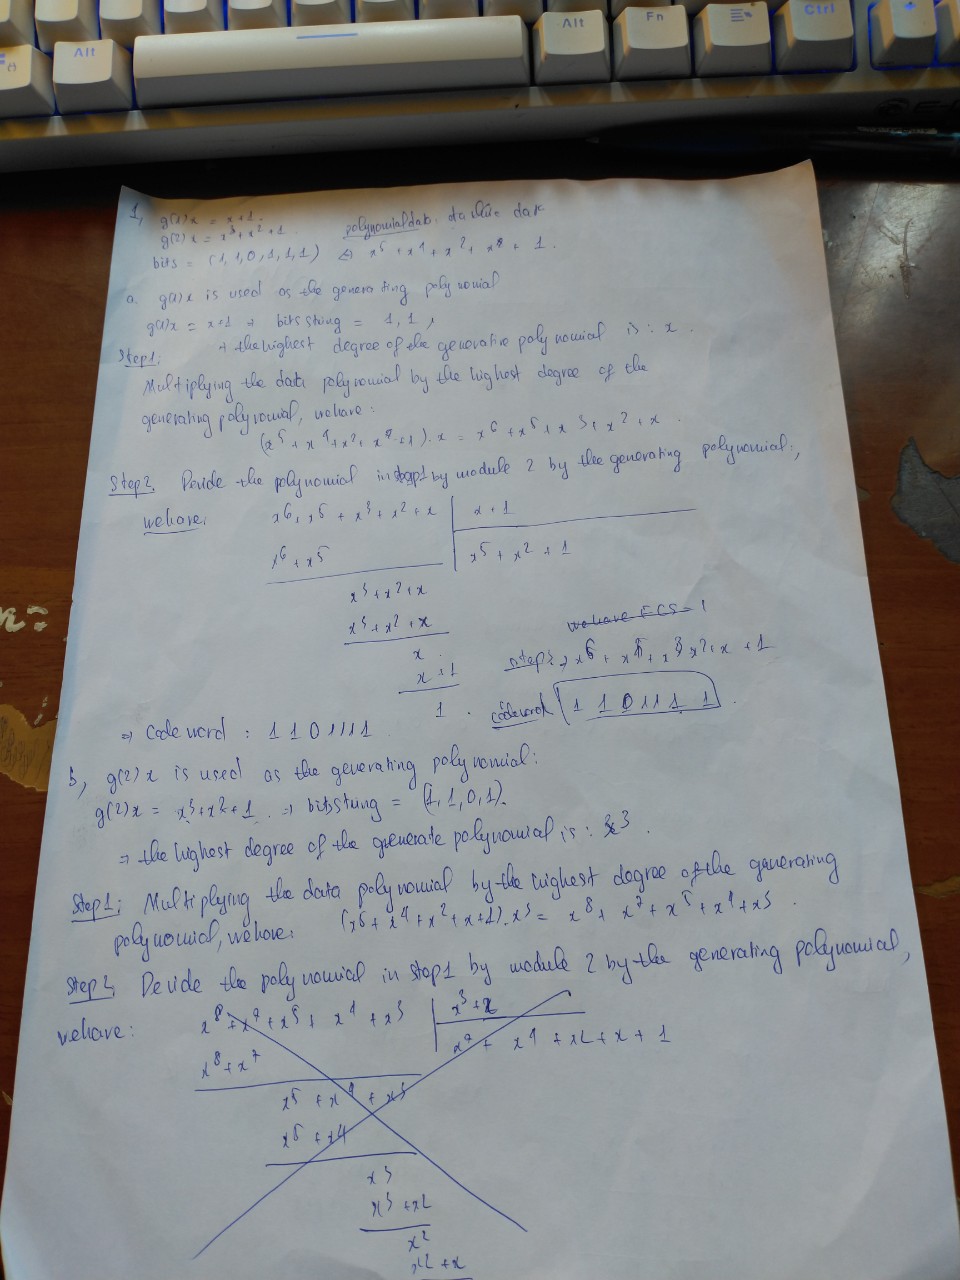 Alt
Alt
Fn
Ctrl
1, g(1)x = x+1.
g(2)x = x³+x²+1. polynomial data:
bits = (1,1,0,1,1,1) ⇔ x⁵ + x⁴ + x² + x + 1.
a. g(1)x is used as the generating polynomial
g(1)x = x+1 → bitsstring = 1,1,
→ the highest degree of the generative polynomial is: x.
Step1:
Multiplying the data polynomial by the highest degree of the
generating polynomial, wehave:
(x⁵ + x⁴ + x² + x + 1).x = x⁶ + x⁵ + x³ + x² + x.
Step2, Devide the polynomial in step1 by module 2 by the generating polynomial,
wehave:
x⁶ + x⁵ + x³ + x² + x x + 1
x⁶ + x⁵ x⁵ + x² + 1
x³ + x² + x
x³ + x² + x
wehave FCS = 1
x
step3 → x⁶ + x⁵ + x³ x² + x + 1
x + 1
1. codeword 1 1 0 1 1 1 1.
⇒ Codeword : 1 1 0 1 1 1 1
b, g(2)x is used as the generating polynomial:
g(2)x = x³+x²+1. ⇒ bitsstring = (1,1,0,1).
⇒ the highest degree of the generate polynomial is: 3.
Step1: Multiplying the data polynomial by the highest degree of the generating
polynomial, wehave: (x⁵ + x⁴ + x² + x + 1).x³ = x⁸ + x⁷ + x⁵ + x⁴ + x³.
Step2, Devide the polynomial in step1 by module 2 by the generating polynomial,
wehave:
x⁸ + x⁷ + x⁵ + x⁴ + x³ x³ +
x⁸ + x⁷ x⁷ + x⁴ + x² + x + 1
x⁵ + x⁴ + x³
x⁵ + x⁴
x³
x³ + x²
x²
x² + x